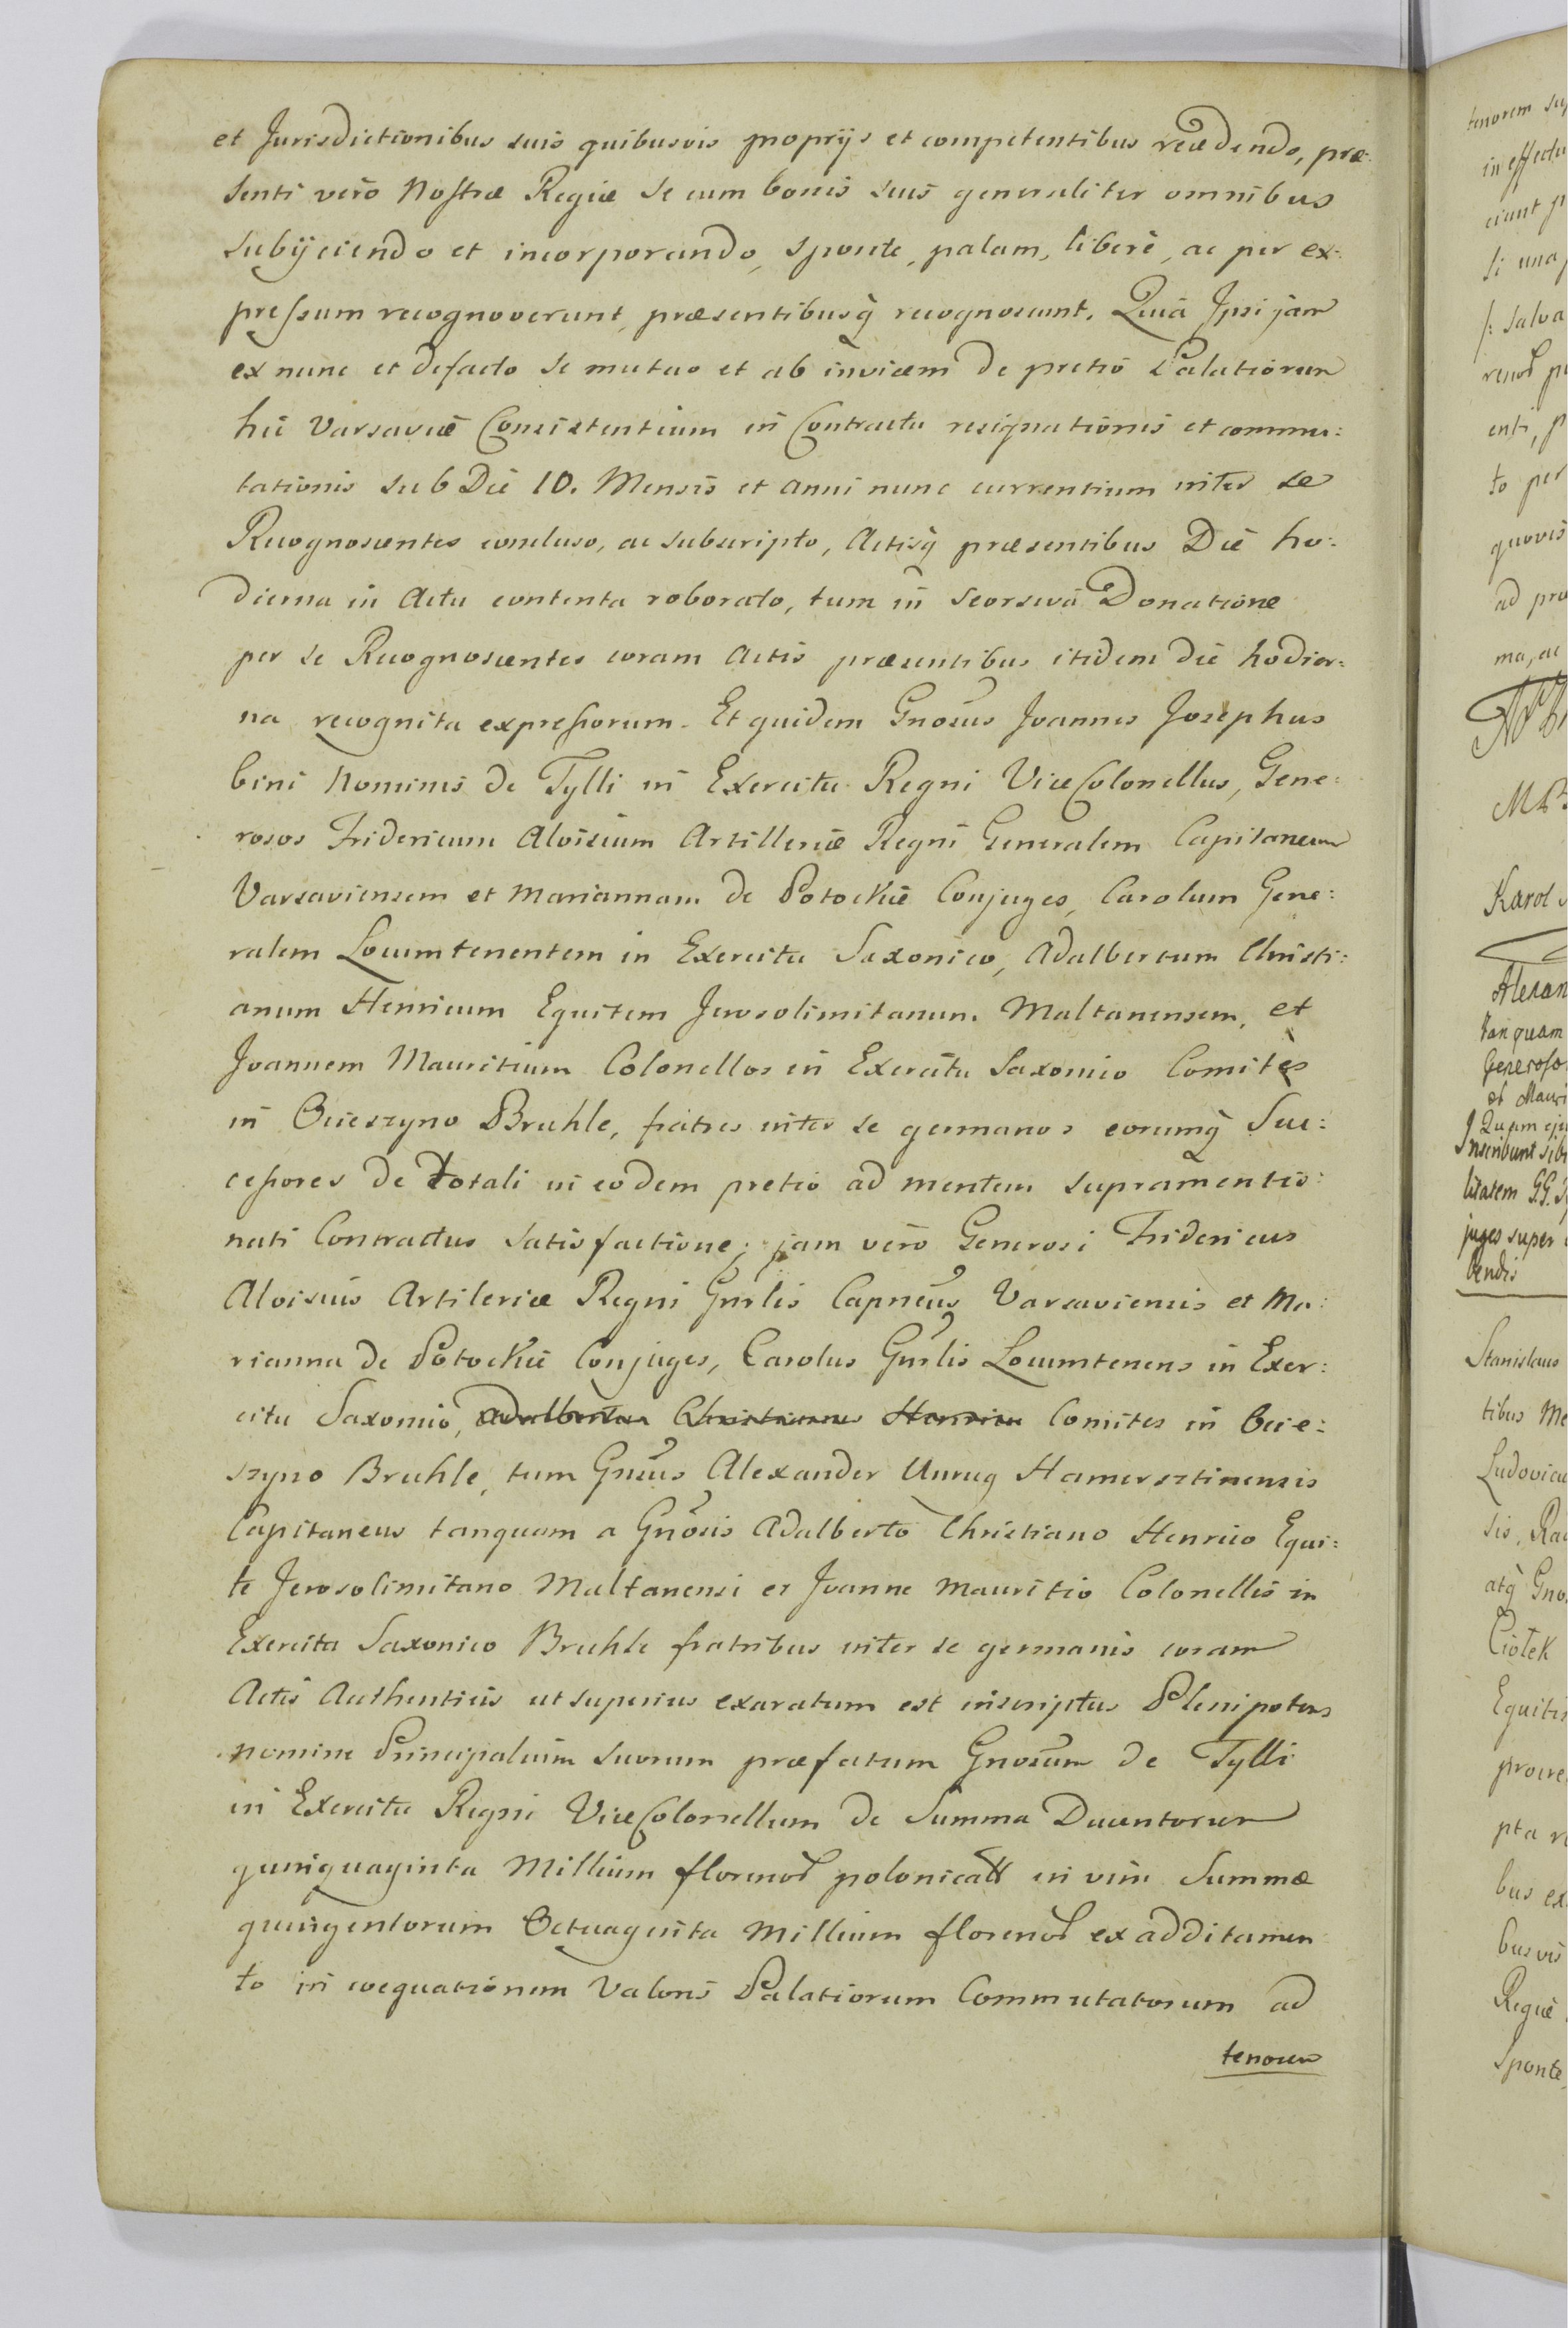 et Jurisdictionibus suis quibusvis proprijs et competentibus recedendo, præ:
senti verò Nostræ Regiæ se cum bonis suis generaliter omnibus
subijciendo et incorporando, sponte, palam, liberè, ac per ex:
preſsum recognoverunt, præsentibusq̀ recognoscunt. Quia Jpsi jam
ex nunc et defacto se mutuo et ab invicem de pretio Palatiorum
hic Varsaviæ Consistentium in Contractu resignationis et commu:
tationis sub Die 10. Mensis et anni nunc currentium inter se
Recognoscentes concluso, ac subscripto, Actisq̀ præsentibus Die ho:
dierna in Actu contenta roborato, tum in seorsiva Donatione
per se Recognoscentes coram Actis præsentibus itidem die hodier:
na recognita expreſsorum. Et quidem Gnosus Joannes Josephus
bini Nominis de Tylli in Exercitu Regni ViceColonellus, Gene:
rosos Fridericum Aloisium Artilleriæ Regni Generalem Capitaneum
Varsaviensem et Mariannam de Potockie Conjuges, Carolum Gene:
ralem Locumtenentem in Exercitu Saxonico, Adalbertum Christi:
anum Henricum Equitem Jerosolimitanum Maltanensem, et
Joannem Mauritium Colonellos in Exercitu Saxonico Comites
in Ocieszyno Bruhle, fratres inter se germanos eorumq̀ Suc:
ceſsores de totali in eodem pretio ad mentem supramentio:
nati Contractus satisfactione; jam verò Generosi Fridericus
Aloisius Artileriæ Regni Gnrlis Capneus Varsaviensis et Ma:
rianna de Potockie Conjuges, Carolus Gnrlis Locumtenens in Exer:
citu Saxonico, Adalbertus Christianus Henricus Comites in Ocie:
szyno Bruhle, tum Gnsus Alexander Unrug Hamersztinensis
Capitaneus tanquam a Gnosis Adalberto Christiano Henrico Equi:
te Jerosolimitano Maltanensi et Joanne Mauritio Colonellis in
Exercitu Saxonico Bruhle fratribus inter se germanis coram
Actis Authenticis ut superius exaratum est inscriptus Plenipotens
nomine Principalium suorum præfatum Gnosum de Tylli
in Exercitu Regni ViceColonellum de Summa Ducentorum
quinquaginta Millium floreno polonical in vim Summæ
quingentorum Octuaginta Millium floreno ex additamen
to in coequationem Valoris Palatiorum Commutatorum ad
tenorem
tenorem
in effectu
ciunt
si una
/: salva
enti,
to per
quovis
ad præ
ma, ac
Karol
Alexan
tanquam
Generoso
et Mauri
Inscribunt sibi
litatem G.G.
juges super
bendis
Stanislaus
tibus Me
Ludovicu
sis, Ra
atq̀ Gno
Ciołek
Equitis
pta
bus ex
bus vis
Regiæ
Sponte